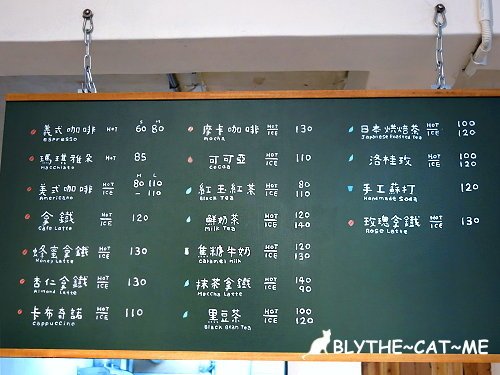 義式咖啡 HOT S 60 M 80
espresso
瑪琪雅朵 HOT 85
Macchiato
美式咖啡 HOT M 80 L 110
Americano ICE — 110
拿鐵 HOT ICE 120
Cafe Latte
蜂蜜拿鐵 HOT ICE 130
Honey Latte
杏仁拿鐵 HOT ICE 130
Almond Latte
卡布奇諾 HOT ICE 110
cappuccino
摩卡咖啡 HOT ICE 130
mocha
可可亞 HOT ICE 110
cocoa
紅玉紅茶 HOT 80
Black Tea ICE 110
鮮奶茶 HOT 120
Milk Tea ICE 140
焦糖牛奶 HOT 120
caramel Milk ICE 130
抹茶拿鐵 HOT 140
Maccha Latte ICE 90
黑豆茶 HOT 100
Black Bean Tea ICE 120
日本烘焙茶 HOT 100
Japanese Roasted Tea ICE 120
洛桂玫 HOT 100
ICE 120
手工蘇打 120
Handmade Soda
玫瑰拿鐵 HOT ICE 130
Rose Latte
BLYTHE~CAT~ME